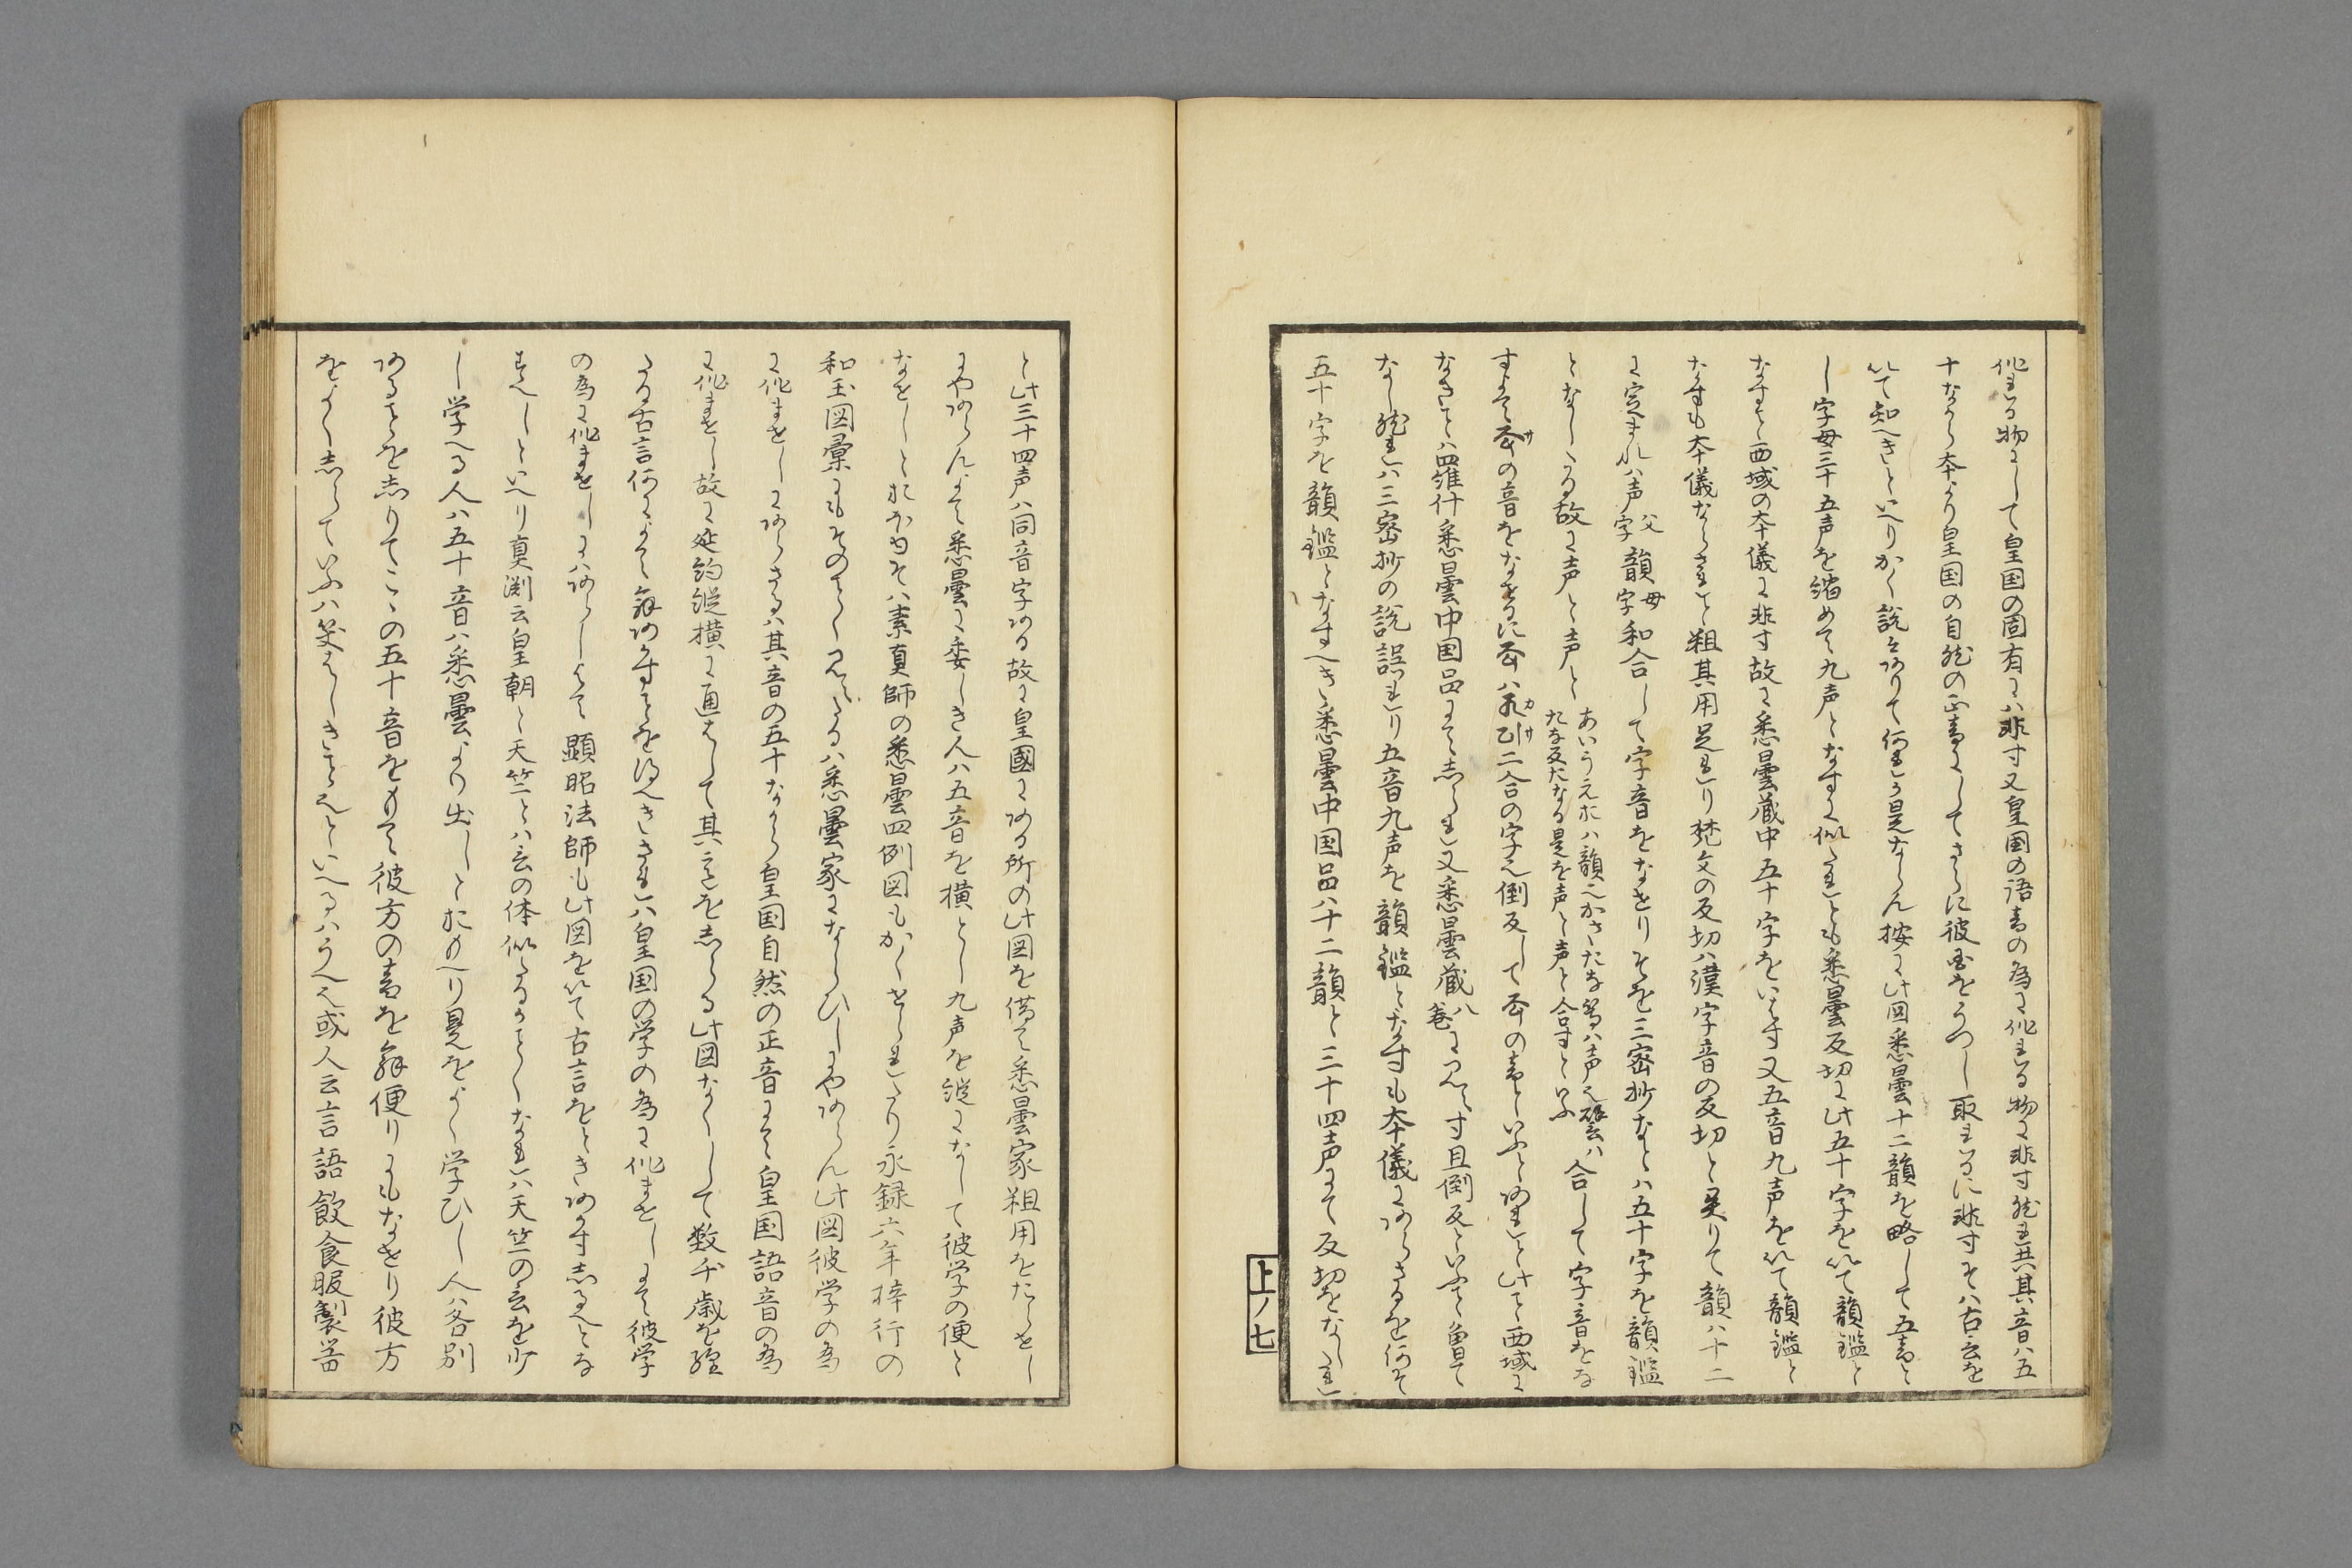 作れる物にして皇国の固有に八非す又皇国の語音の為に作れる物に非す然れ共其音ハ五
十なから本より皇国の自然の正音にしてさらに彼国をうつし取れるに非すそハ古言を
以て知へきといへりかく説々ありて何れか是ならん按に此図悉曇十二韻を略して五音と
し字母三十五声を縮めて九声となすに似たれとも悉曇反切に此五十字を以て韻鑑と
なすこと西域の本儀に非す故に悉曇蔵中五十字をいはす又五音九声を以て韻鑑と
なすも本儀ならされと粗其用足れり梵文の反切ハ漢字音の反切と異りて韻ハ十二
に定まれハ声字父韻字母和合して字音をなせりそを三密抄なとハ五十字を韻鑑
となしたる故に声と声と
あいうえおハ韻也かさたな等ハ声也譬ハ
たな反たなる是を声と声と合すといふ
合して字音をな
すよて の音をなせるに ハ 二合の字也倒反して の音といふとあれと此こと西域に
なきことハ羅什悉曇中国品にてしられ又悉曇蔵八巻に見えす且倒反といふこと曾て
なし然れハ三密抄の説誤れり五音九声を韻鑑となすも本儀にあらさるを何そ
五十字を韻鑑となすへき悉曇中国品ハ十二韻と三十四声にて反切をなしたれ
上ノ七
と此三十四声ハ同音字ある故に皇國にある所の此図を借て悉曇家粗用をたらせし
にやあらんよて悉曇に委しき人ハ五音を横とし九声を縦になして彼学の便と
なをしとおほゆそハ素真師の悉曇四列図もかくせられたり永録六年梓行の
和玉図彙にもそのことく見えたるハ悉曇家にならひしにやあらん此図彼学の為
に作ませしにあらさるハ其音の五十なから皇国自然の正音にて皇国語音の為
に作ませし故に延約縦横に通はして其意をしらる此図なくして数千歳を経
たる古言何によて解あかすことを得へきされハ皇国の学の為に作ませしにて彼学
の為に作ませしにハあらしよて顕昭法師も此図を以て古言をときあかすしるへとな
すへしといへり真渕云皇朝と天竺とハ言の体似たることくなれハ天竺の言を少
し学へる人ハ五十音ハ悉曇より出しとおもへり是をよく学ひし人ハ各別
あることをしりてこゝの五十音をもて彼方の音を解便りにもなせり彼方
をよくしらていふハ笑はしきことそといへるハうへ也或人云言語飲食服製